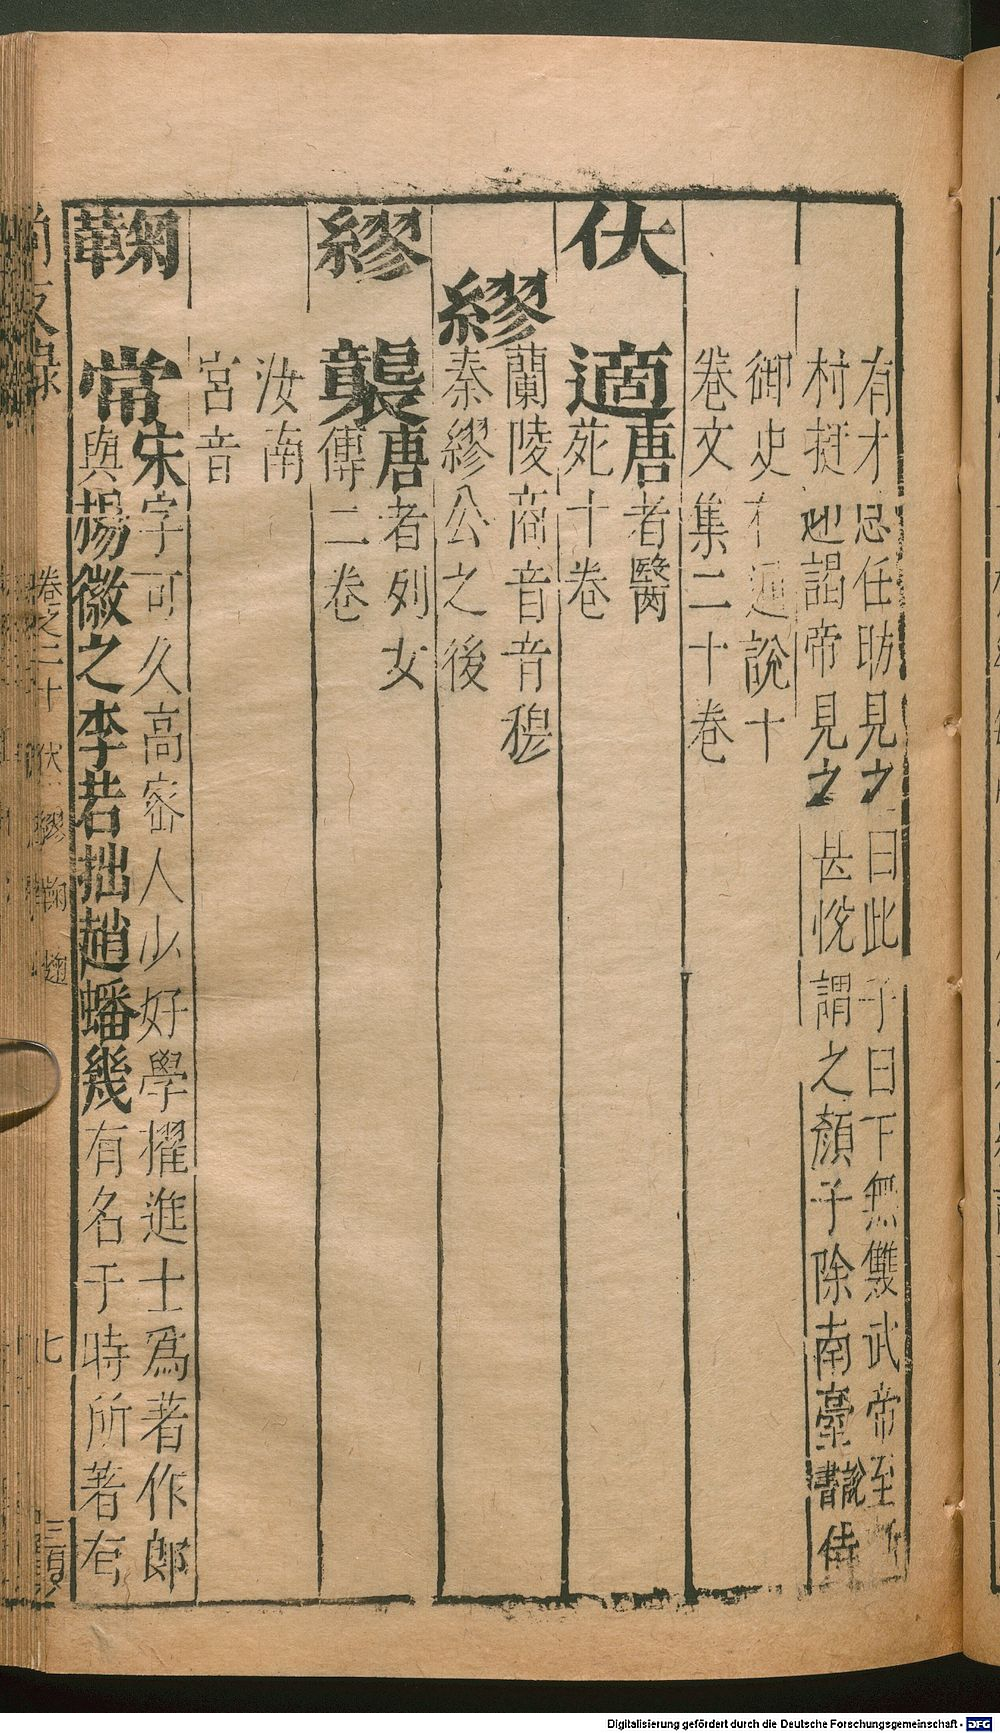 有才思任昉見之曰此子日下無雙武帝至
村挺迎謁帝見之甚悅謂之顏子除南臺說書侍
御史有邇說十
卷文集二十卷
伏適唐者醫
苑十卷
繆蘭陵商音音穆
秦繆公之後
繆襲唐者列女
傳二卷
汝南
宮音
鞠常宋字可久高密人少好學擢進士爲著作郎
與楊徽之李若拙趙蟠幾有名于時所著有
尚友錄 卷之二十 伏 繆 鞠 麯 七
Digitalisierung gefördert durch die Deutsche Forschungsgemeinschaft - DFG